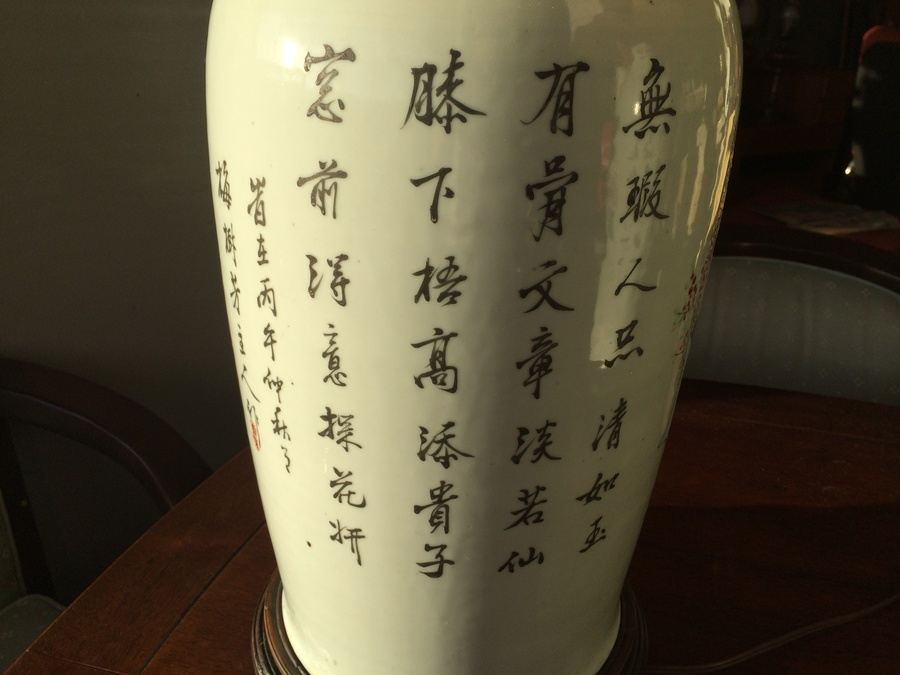 無瑕人品清如玉
有骨文章淡若仙
膝下梧高添貴子
窓前得意探花妍
省在丙午仲秋月
梅 芳主人作